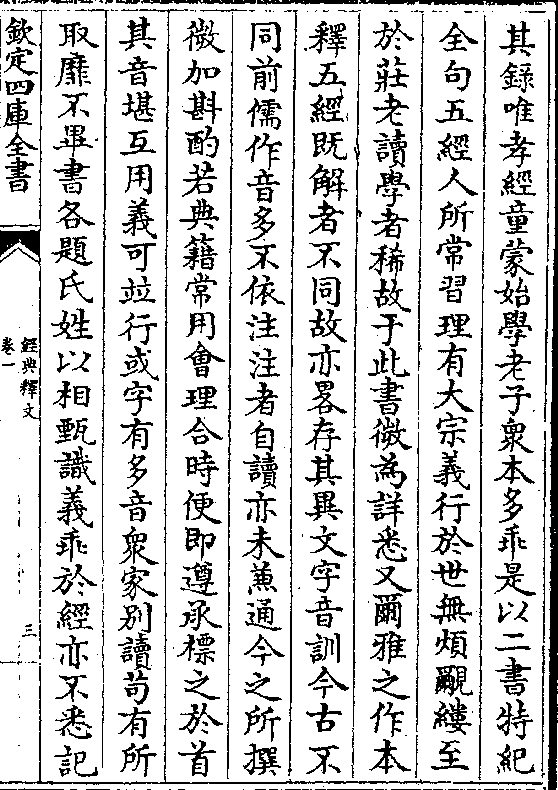 其錄唯孝經童蒙始學老子衆本多乖是以二書特紀
全句五經人所常習理有大宗義行於世無煩覼縷至
於莊老讀學者稀故于此書微為詳悉又爾雅之作本
釋五經既解者不同故亦畧存其異文字音訓今古不
同前儒作音多不依注注者自讀亦未兼通今之所撰
微加斟酌若典籍常用會理合時便即遵承標之於首
其音堪互用義可竝行或字有多音衆家别讀苟有所
取靡不畢書各題氏姓以相甄識義乖於經亦不悉記
欽定四庫全書
經典釋文
卷一
三